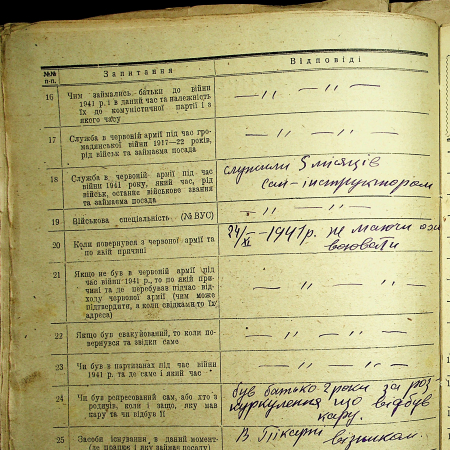 №№ п-п. Запитання Відповіді
16 Чим займались батьки до війни
1941 р. і в даний час та належність
їх до комуністичної партії і з
якого часу
— " — " —
17 Служба в червоній армії під час гро-
мадянської війни 1917—22 років,
рід військ та займаєма посада
— " — " —
18 Служба в червоній армії під час
війни 1941 року, який час, рід
військ, останнє військове звання
та займаєма посада
служили 5 місяців
сан-інструктором
19 Військова спеціальність (№ ВУС)
— " — " —
20 Коли повернувся з червоної армії та
по якій причині
1941 р. не маючи
воювали
21 Якщо не був в червоній армії під
час війни 1941 р., то по якій при-
чині та де перебував підчас від-
ходу червоної армії (чим може
підтвердити, а коли свідками то їх
адреса)
— " — " —
22 Якщо був евакуйований, то коли по-
вернувся та звідки саме
— " — " —
23 Чи був в партизанах під час війни
1941 р. та де саме і який час
— " — " —
24 Чи був репресований сам, або хто з
родичів, коли і защо, яку мав
кару та чи відбув її
був батько 2 роки за роз
куркулення що відбув
кару.
25 Засоби існування в даний момент
(де працює і яку займає посаду)
В лікарні візником.